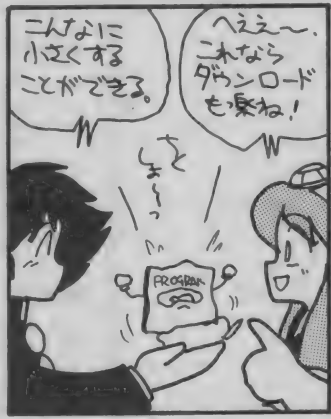 へええ〜、
これなら
ダウンロード
も楽ね!
こんなに
小さくする
ことができる。
ちく
しょ〜っ
PROGRAM